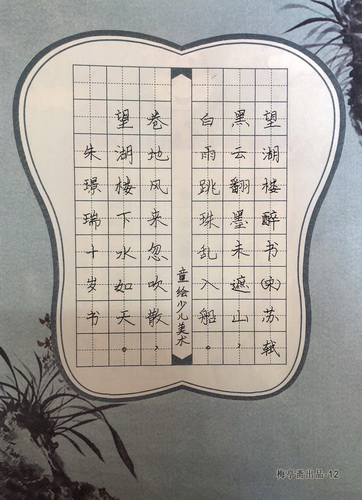 望湖楼醉书(宋)苏轼
黑云翻墨未遮山，
白雨跳珠乱入船。
童绘少儿美术
卷地风来忽吹散，
望湖楼下水如天。
朱璟瑞十岁书
梅亭斋出品-12